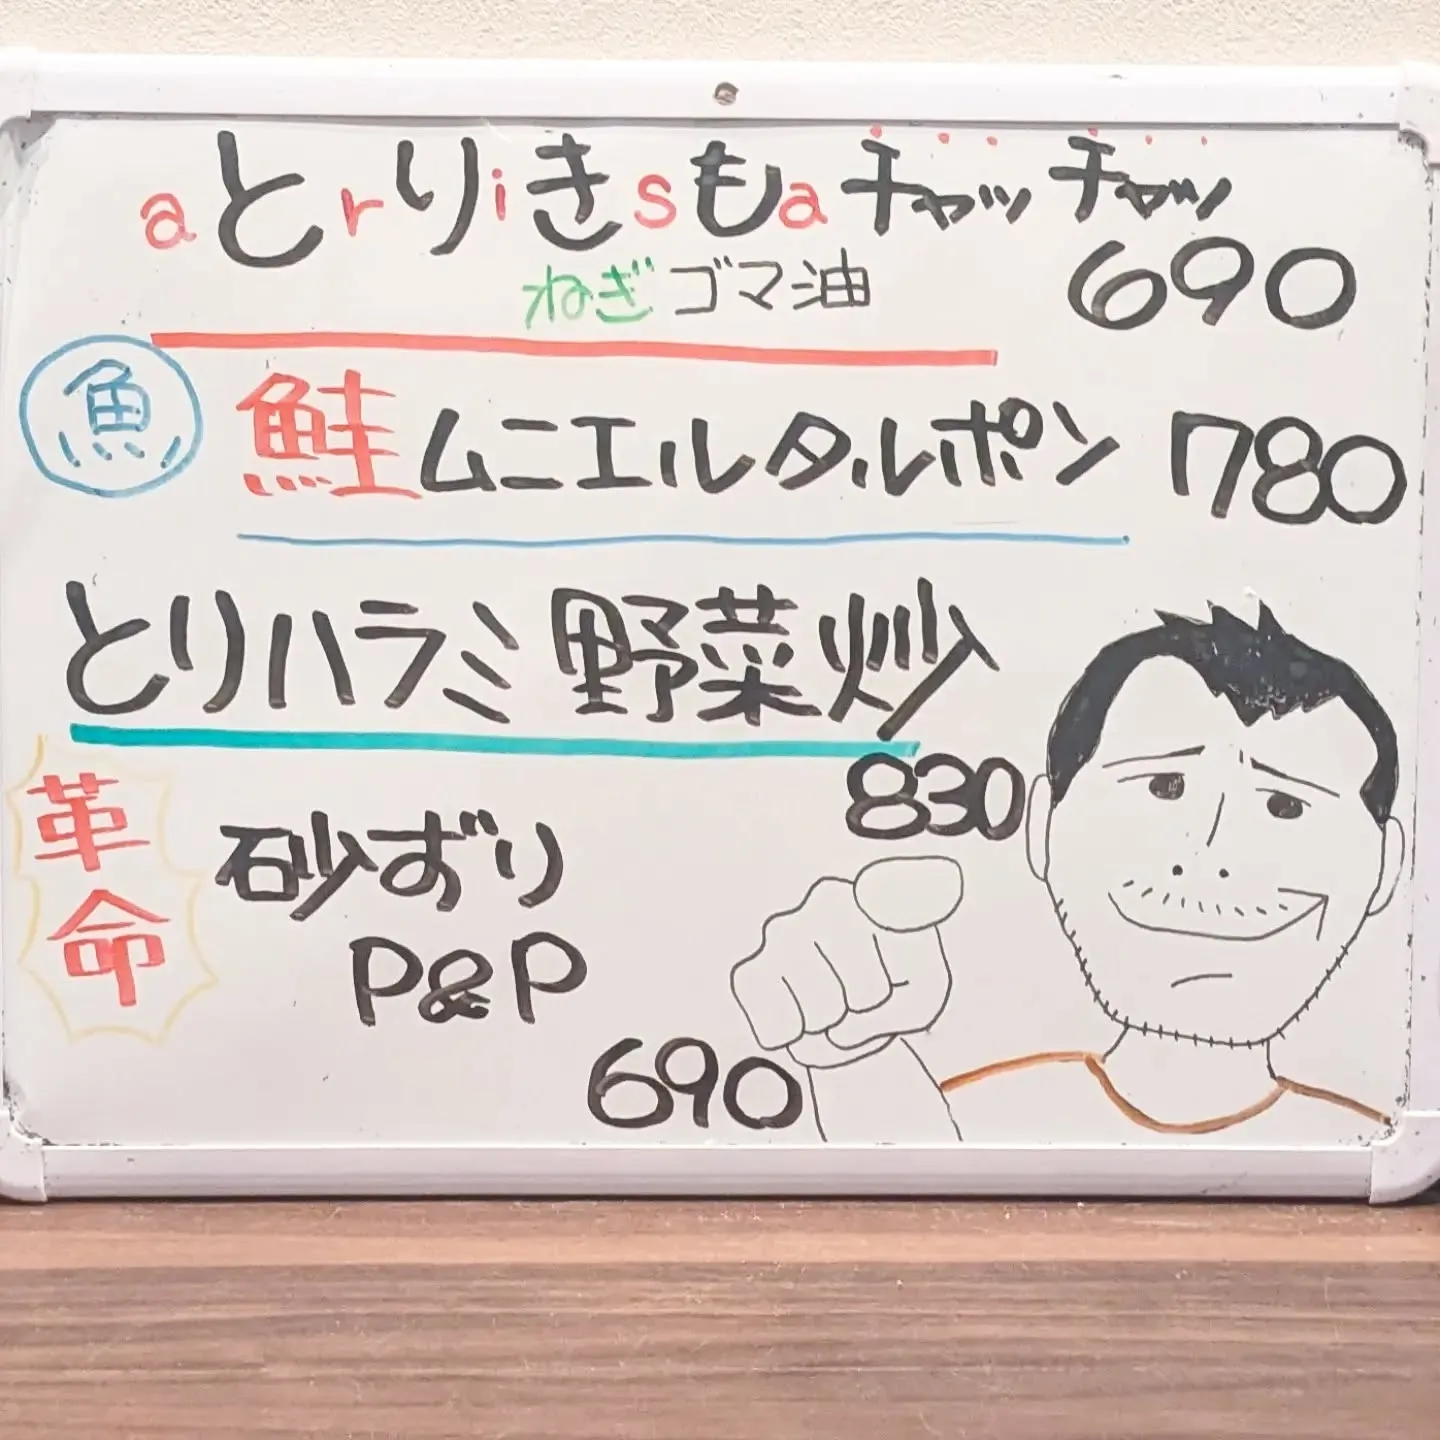 aとrりiきsもaチャッチャッ
ねぎゴマ油
690
魚
鮭ムニエルタルポン 780
とりハラミ野菜炒
830
革命
砂ずり
P&P
690